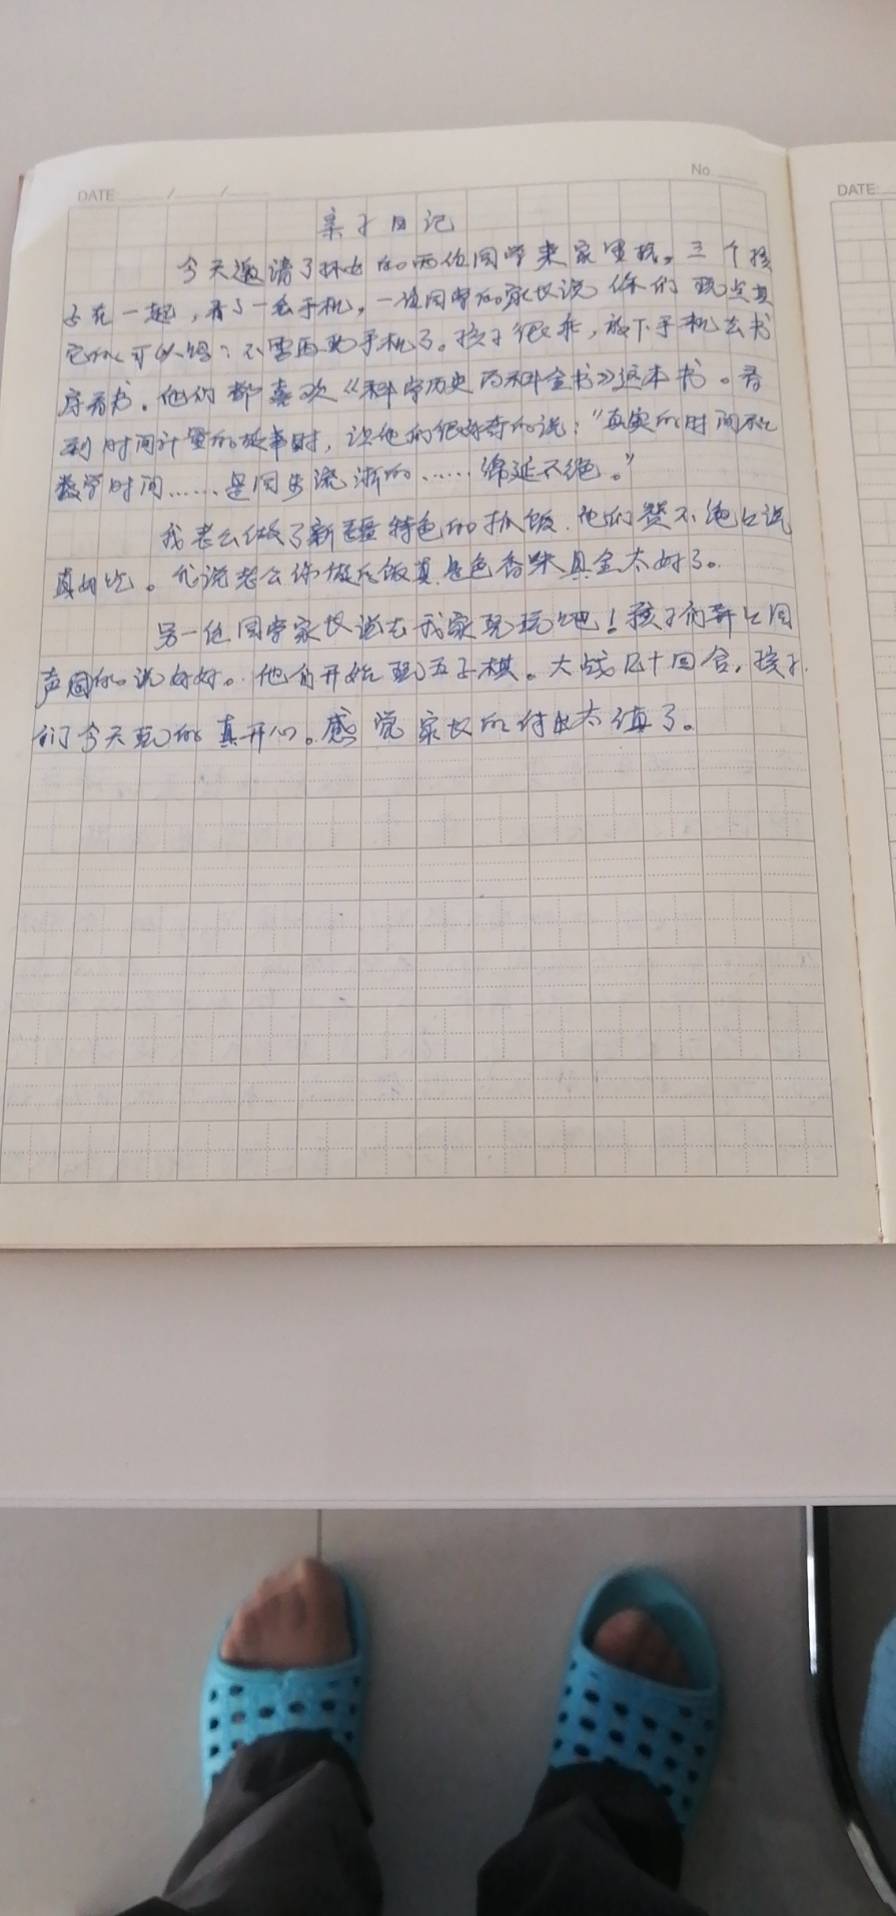 No
DATE / /
DATE:
亲子日记
今天邀请了 的两位同学来家里玩。三个孩
子在一起,看了一会手机,一位同学的家长说你们玩点其
它的可以吗?不要再玩手机了。孩子很乖,放下手机去书
房看书。他们都喜欢《科学历史百科全书》这本书。看
到时间计量的故事时,让他们很好奇的说:“真实的时间和
数学时间……是同步流淅的……绵延不绝。”
我老公做了新疆特色的抓饭.他们赞不绝口说
真好吃。我说老公你做的饭真是色香味具全太好了。
另一位同学家长说去我家玩玩吧!孩子们异口同
声同的说好好。他们开始玩五子棋。大战几十回合,孩子
们今天玩的真开心。感觉家长的付出太值了。